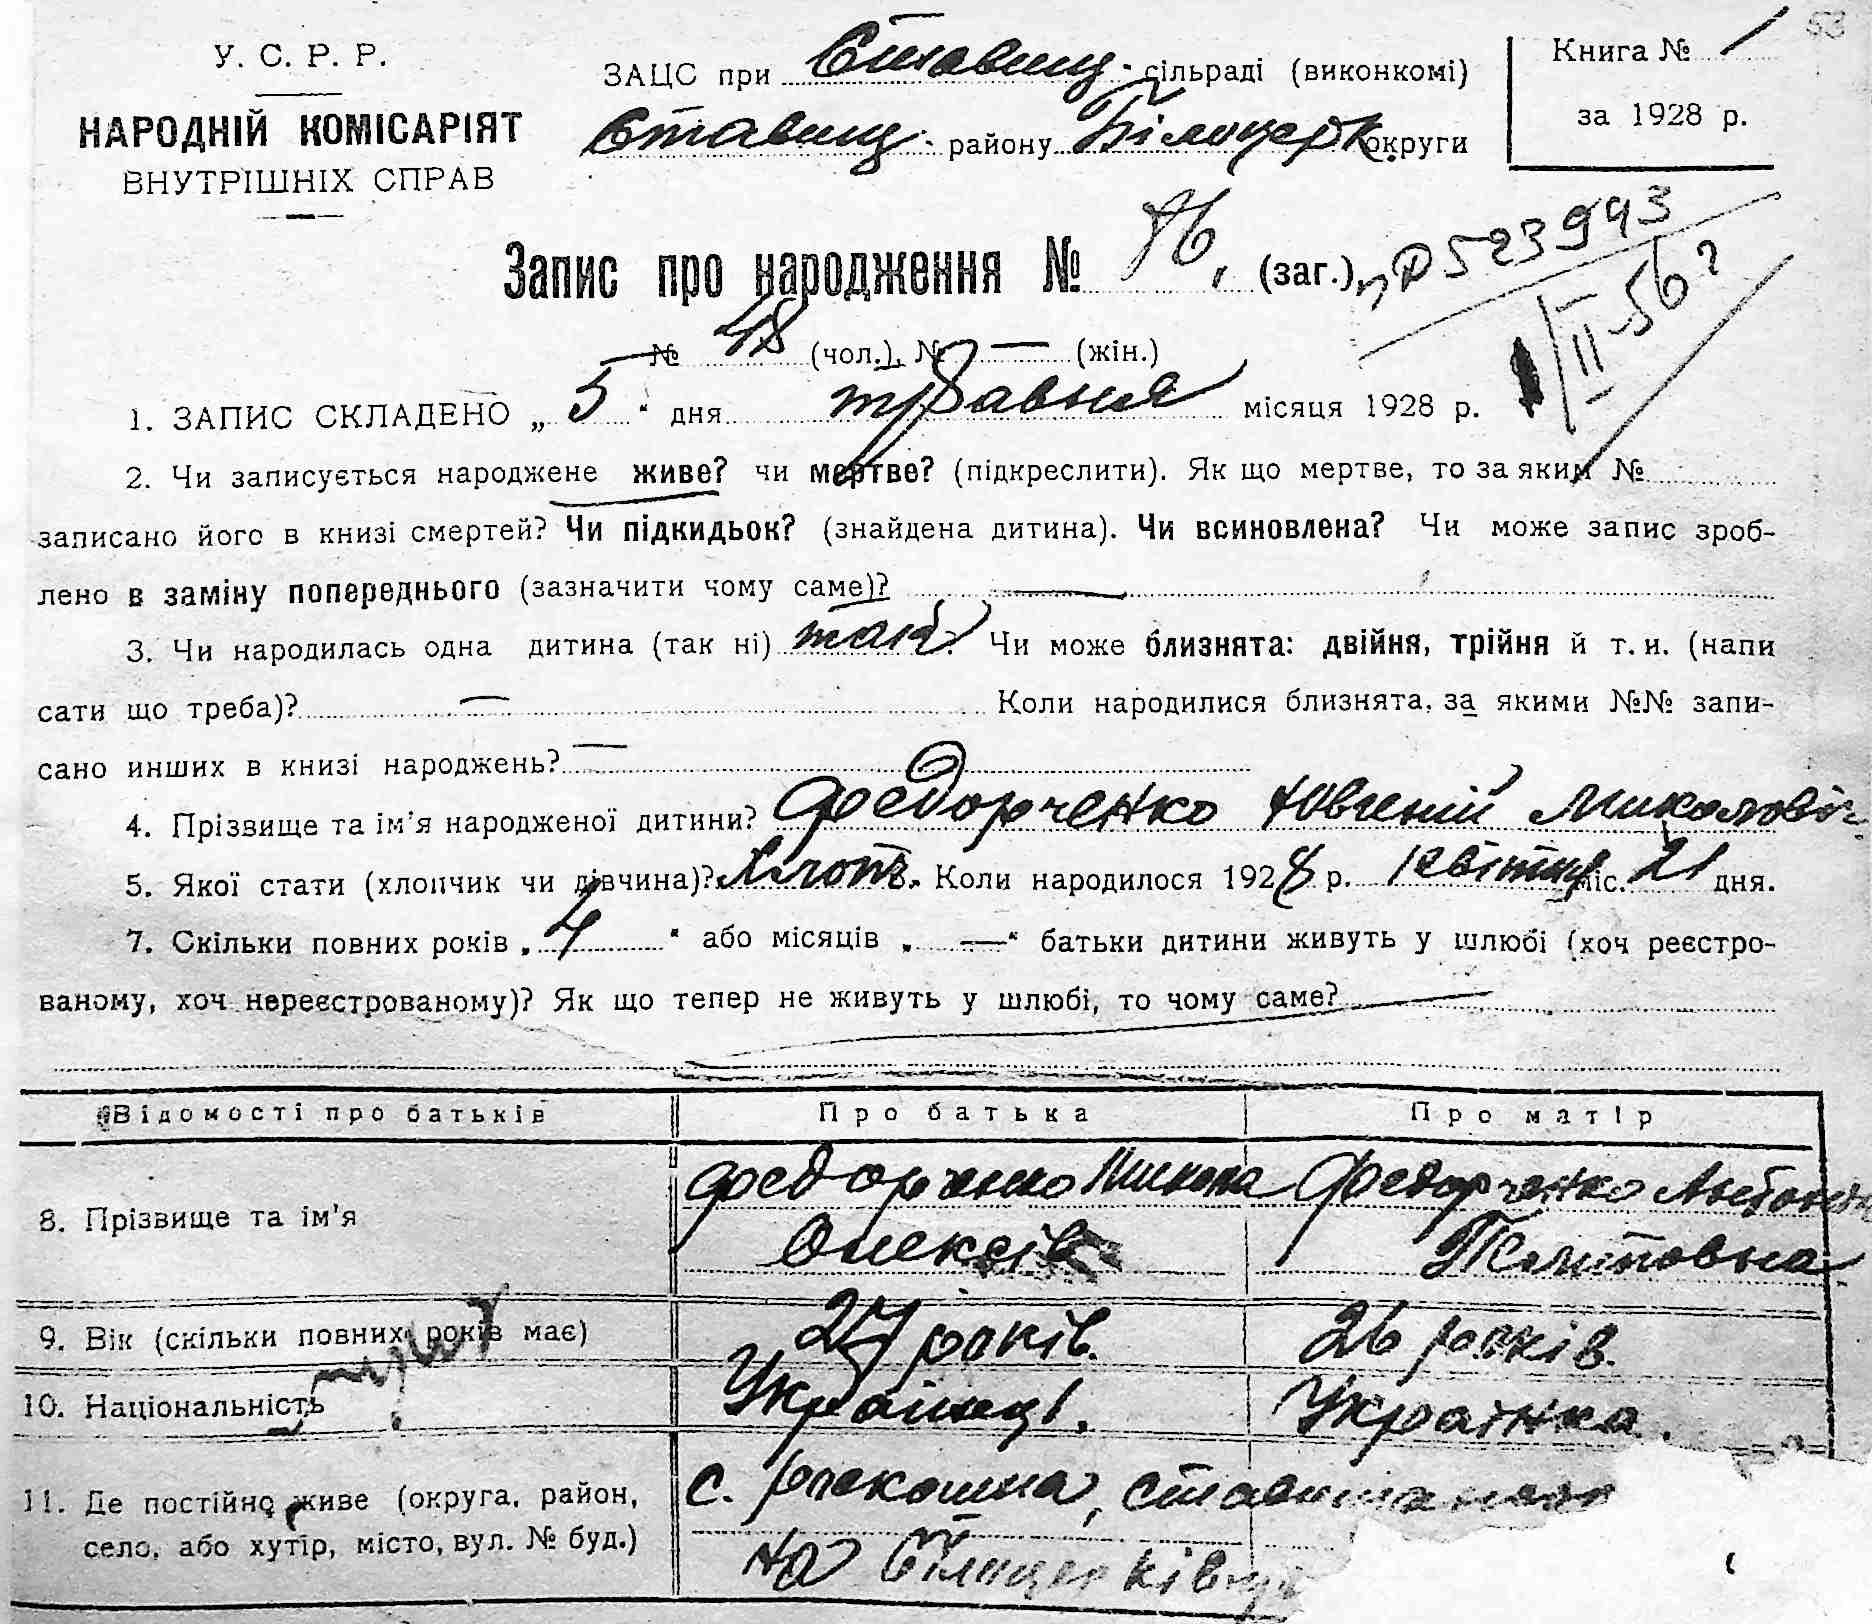 53
У. С. Р. Р.
НАРОДНІЙ КОМІСАРІЯТ
ВНУТРІШНІХ СПРАВ
ЗАЦС при Ставищ. сільраді (виконкомі)
Ставищ. району Білоцерк округи
Книга № 1
за 1928 р.
Запис про народження № 76, (заг.),
пФ 523943
1/II-56 г
№ 48 (чол.), № — (жін.)
1. ЗАПИС СКЛАДЕНО „ 5 “ дня травня місяця 1928 р.
2. Чи записується народжене живе? чи мертве? (підкреслити). Як що мертве, то за яким №
записано його в книзі смертей? Чи підкидьок? (знайдена дитина). Чи всиновлена? Чи може запис зроб-
лено в заміну попереднього (зазначити чому саме)? —
3. Чи народилась одна дитина (так ні) так. Чи може близнята: двійня, трійня й т. и. (напи
сати що треба)? — Коли народилися близнята, за якими №№ запи-
сано инших в книзі народжень? —
4. Прізвище та ім'я народженої дитини? Федорченко Ювгеній Миколович
5. Якої стати (хлопчик чи дівчина)? Хлопч. Коли народилося 1928 р. квітня міс. 21 дня.
7. Скільки повних років „ 4 “ або місяців „ — “ батьки дитини живуть у шлюбі (хоч реєстро-
ваному, хоч нереєстрованому)? Як що тепер не живуть у шлюбі, то чому саме? —
Відомості про батьків Про батька Про матір
8. Прізвище та ім'я
Федорченко Микола Федорченко
Олексів
9. Вік (скільки повних років має) 27 років. 26 років.
10. Національність Українці. Українка.
11. Де постійно живе (округа, район,
село, або хутір, місто, вул. № буд.)
с. Розкошна,
на